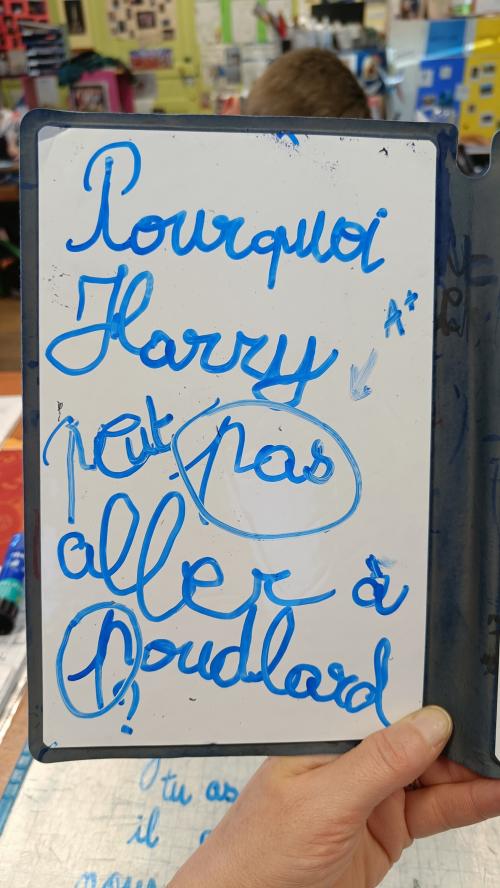 Pourquoi
Harry
A+
peut pas
aller à
poudlard
?
tu as
il